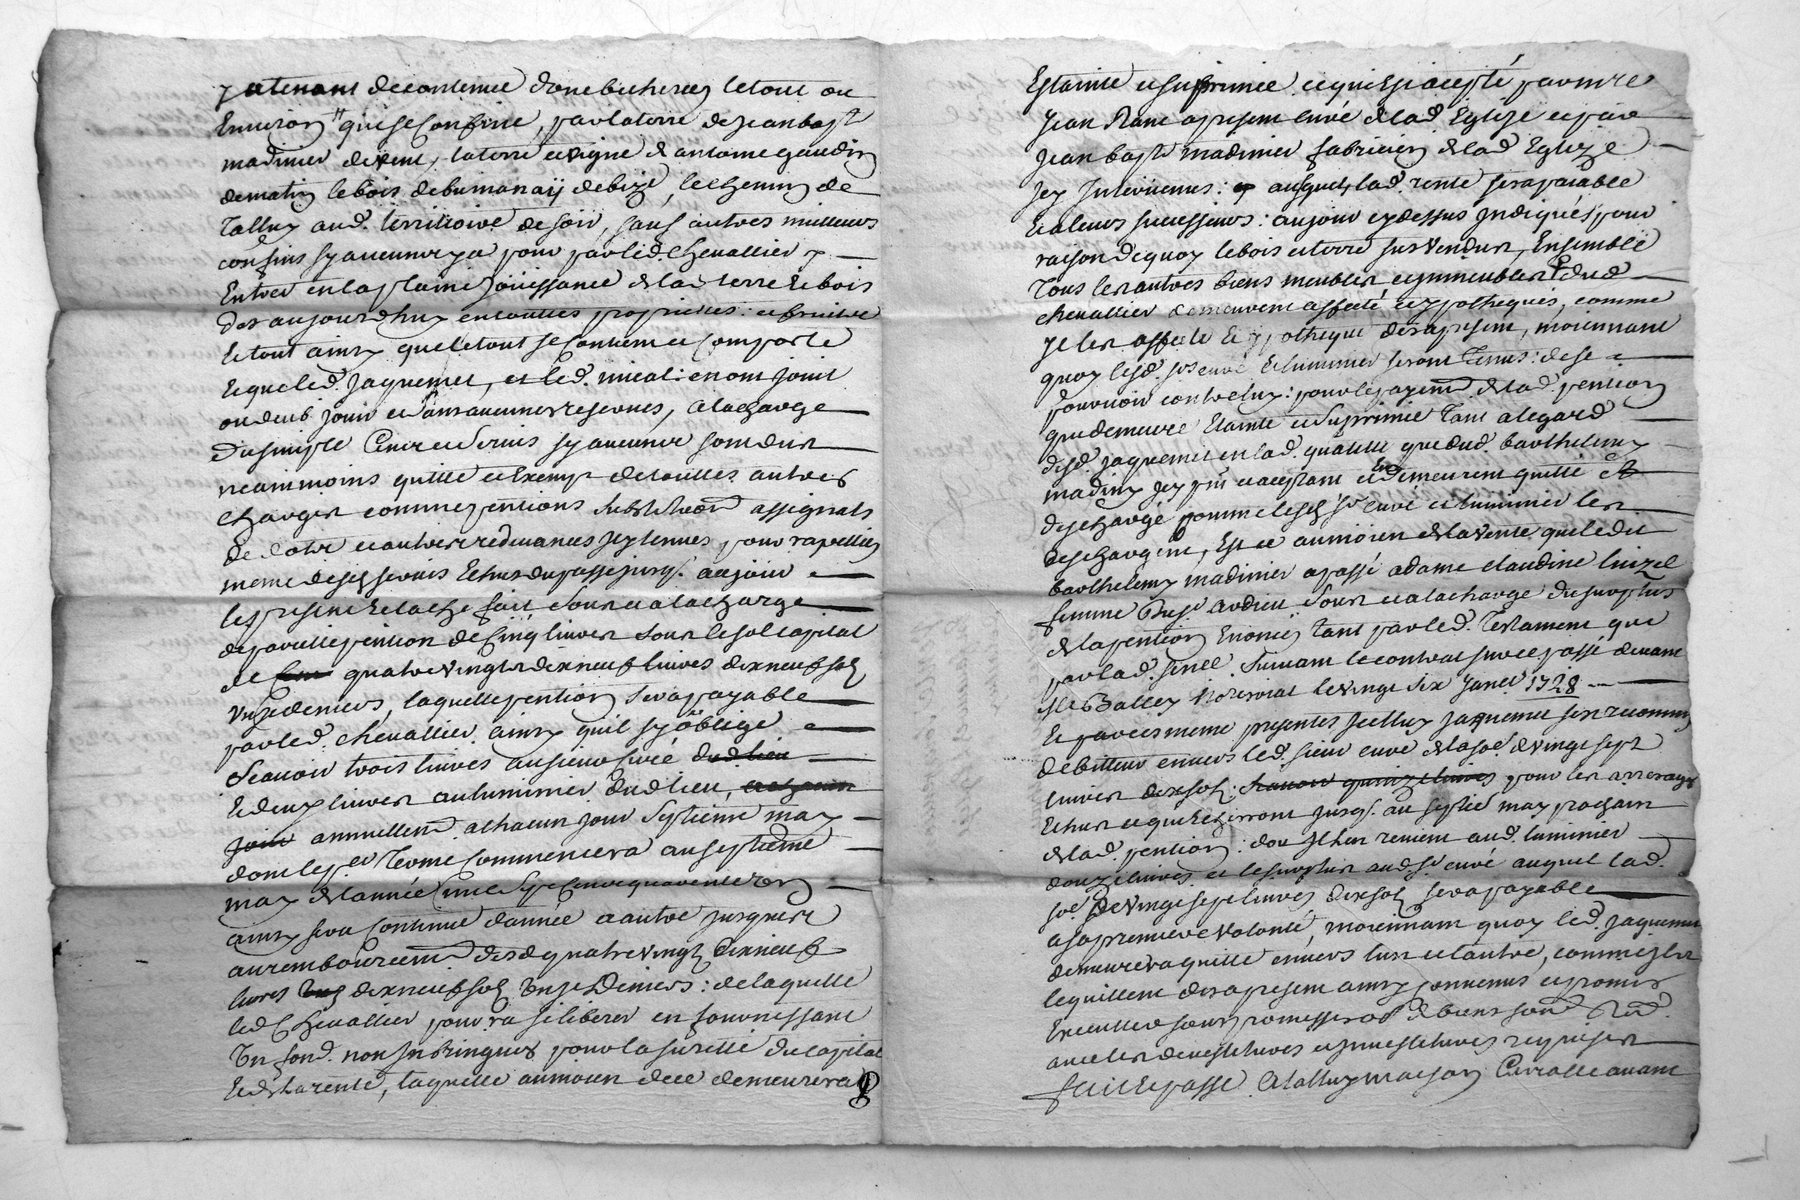 y attenant de contenue d'une bicheree, le tout ou
Environ qui se Confine, par la terre de Jean bapt
madinier de vent, la terre et vigne d'antoine gaudin
de matin le bois de de bize, le chemin de
Tallux aud. territoire de soir, sauf autres meilleurs
confins sy aucuns y a pour par led. Chevallier
Entrer en la plaine jouissance de lad. terre et bois
des aujourdhuy en toutes proprietes et fruits
le tout ainsy que le tout se contient et Comporte
et que led. Jaquemet, et led. ont jouit
ou deub jouir et sans aucunes reserves, a la charge
du simple Cens et Servis sy aucuns sont dus
neammoins quitte et Exempt de touttes autres
charges comme pentions assignats
de dote et autres redevances
meme desd. servis Echus du passé jusq. aujour
le present Etache fait sous et a la charge
de pareille pention de Cinq livres sous le sol capital
de quatre vingts dixneuf livres dixneuf sols
unze deniers, laquelle pention sera payable
par led. Chevallier ainsy quil sy oblige
Scavoir trois livres au sieur Curé dud lieu
et deux livres au luminier dud lieu,
annuellem. a chacun jour septieme may
dont le p.er Terme Commencera au septieme
may de l'année mil sept Cent quarente
ainsy sera continué d'année a autre jusques
au remboursem. desd. quatre vingts dixneuf
livres dixneuf sols unze Deniers: de laquelle
led. Chevallier pourra se liberer en fournissant
un fond. non pour la sureté du capital
et de la rente, laquelle au moien de ce demeurera
Etainte et suprimée ce qui Est acepté par mre
Jean Rane a present curé de lad. Eglize et par
Jean bapte madinier fabricien de lad. Eglize
Jcy Intervenus: ausquels lad. rente sera paiable
et a leurs successeurs: au jour cy dessus Indiqué, pour
raison de quoy le bois et terre sus vendus, Ensemble
Tous les autres biens meubles et immeubles dud.
chevallier demeurent affecté et ypothequés, comme
Il les affecte et ypotheque des a present, moiennant
quoy lesd. srs curé et luminier seront Tenus: de se
pourvoir contre luy: pour le payem. de lad. pention
que demeure Etainte et Suprimée Tant a legard
dud. Jaquemet en lad. qualitté que dud. barthelemy
madiny Jcy pnt et aceptant et demeurent quitte et
dechargé comme lesd. sr curé et luminier les
dechargent, Est ce au moien de la vente que led
barthelemy madinier a passé a dame claudine
femme Sous et a la charge du surplus
de la pention Enoncé Tant par led. Testament que
par lad. Suivant le contrat sur ce passé devant
Me Balley No. Royal le vingt six Janv. 1728
et par ces meme presentes Icelluy Jaquemet sest reconnu
debitteur envers led. sieur curé de la some de vingt sept
livres dix sols: scavoir quinze livres pour les arrerages
Echus et qui Echerront jusq. au septie. may prochain
de lad. pention: dou Il en revient aud. luminier
douze livres et le surplus aud. sr curé auquel lad.
soe. de vingt sept livres dix sols sera payable
a sa premiere volonté, moiennant quoy led. Jaquemet
demeurera quitte envers lun et lautre, comme Ils
le quittent des a present ainsy convenus et promis
Executter sous promesses de biens
avec les devestitures et Investitures requises
fait et passé a tallux maison Curialle avant